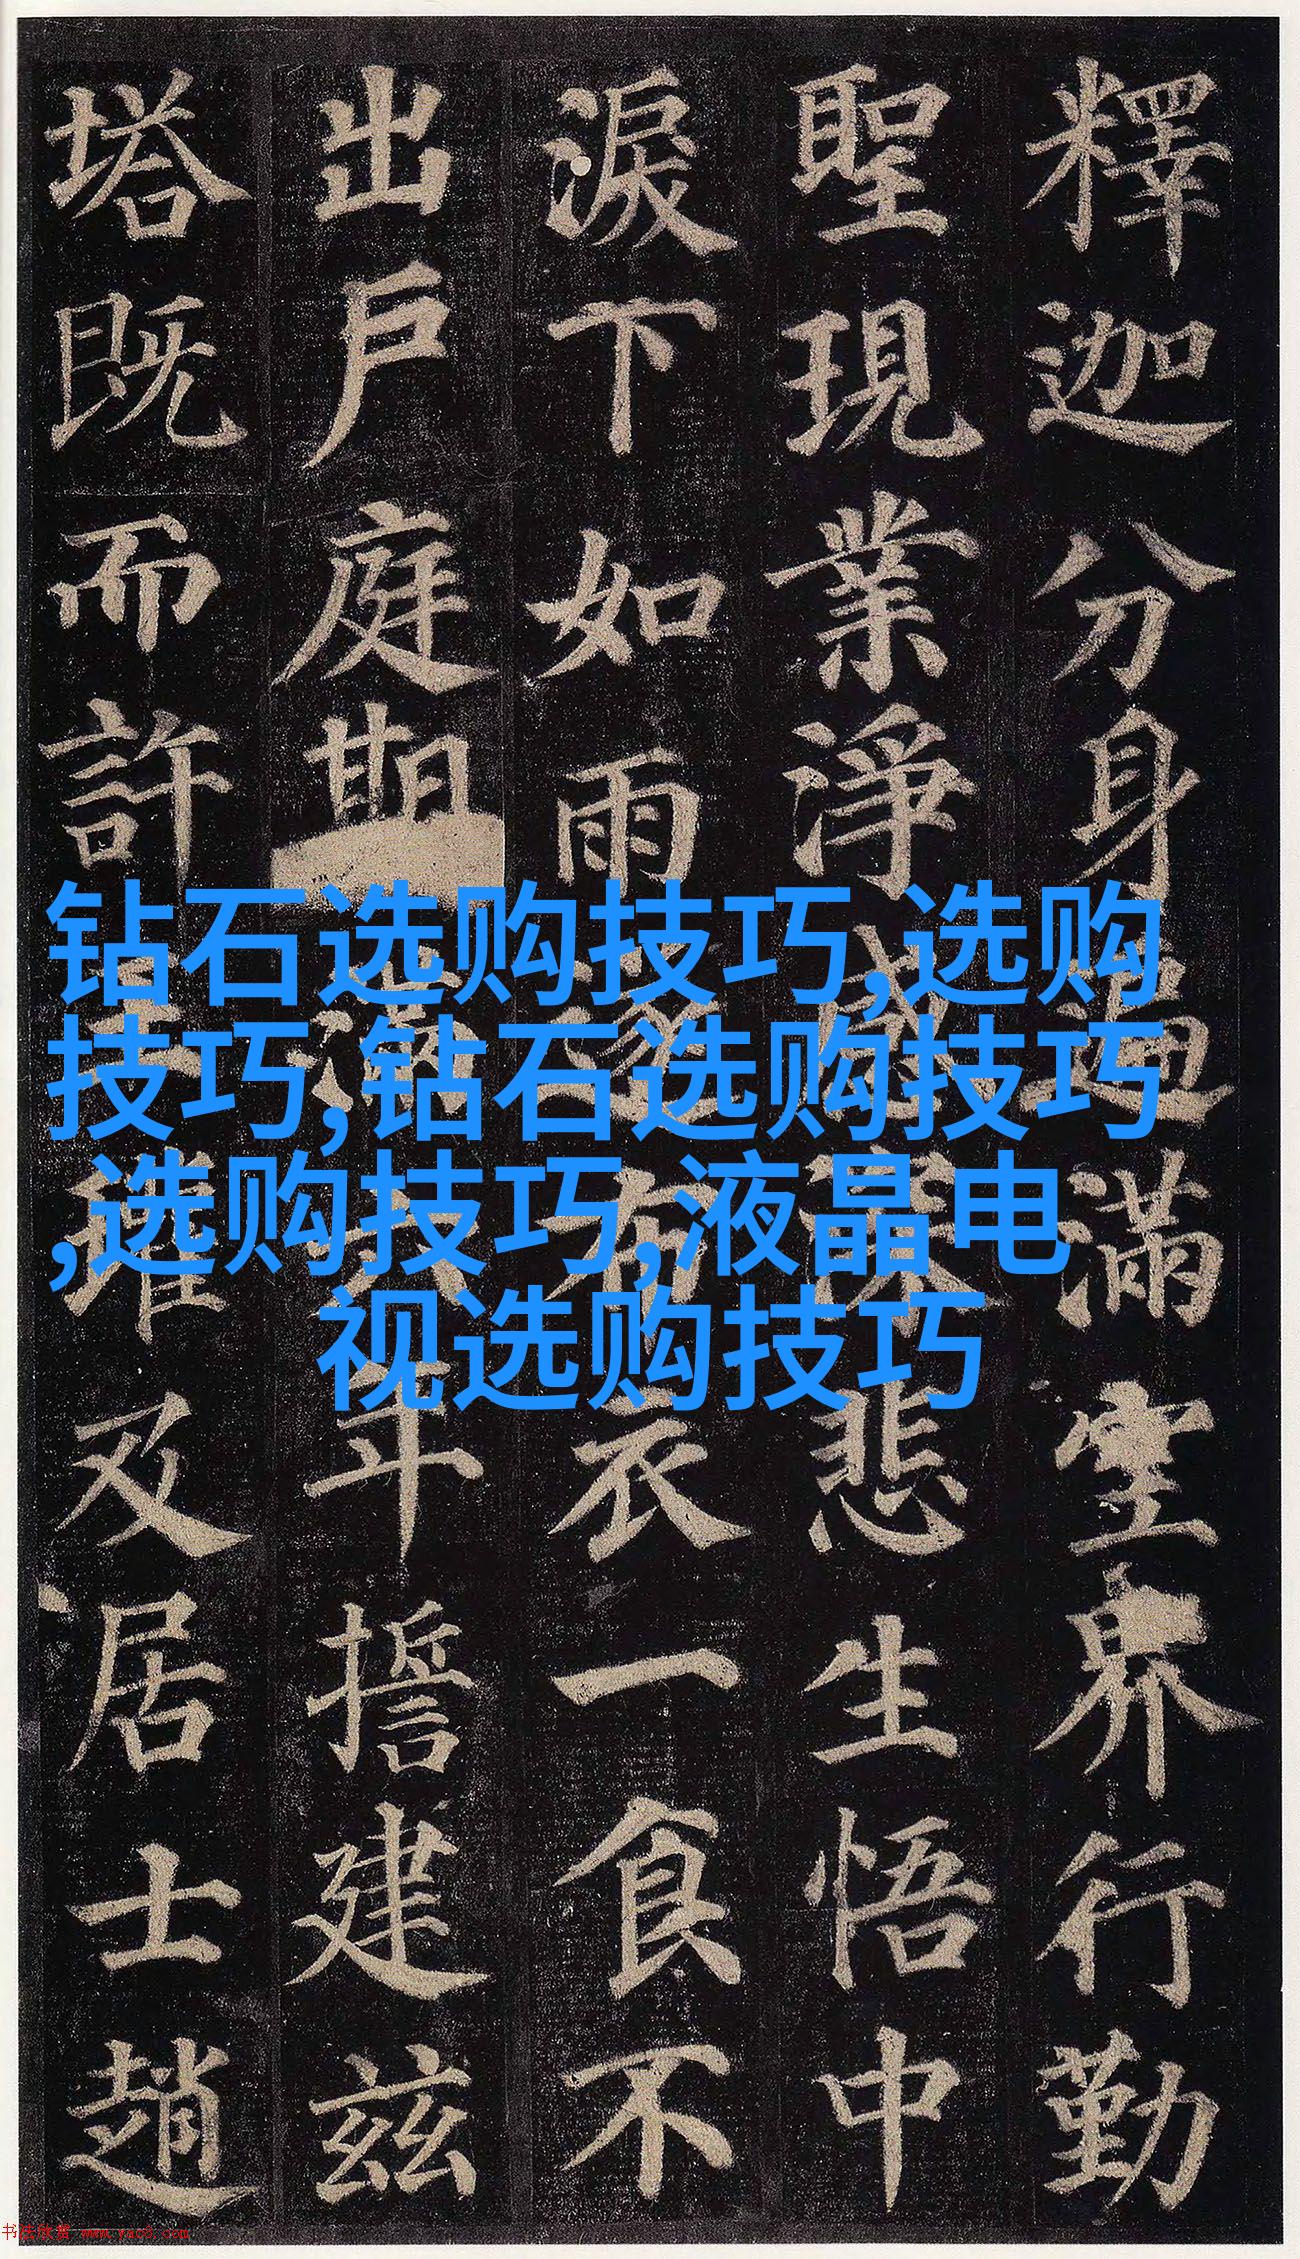 釋迦分身遍滿空界行勤
聖現業淨感悲生悟中
淚下如雨遂布衣一食不
出戶庭期滿六年誓建茲
塔既而許王瓘及居士趙
钻石选购技巧,选购
技巧,钻石选购技巧
,选购技巧,液晶电
视选购技巧
书法欣赏 www.yac8.com